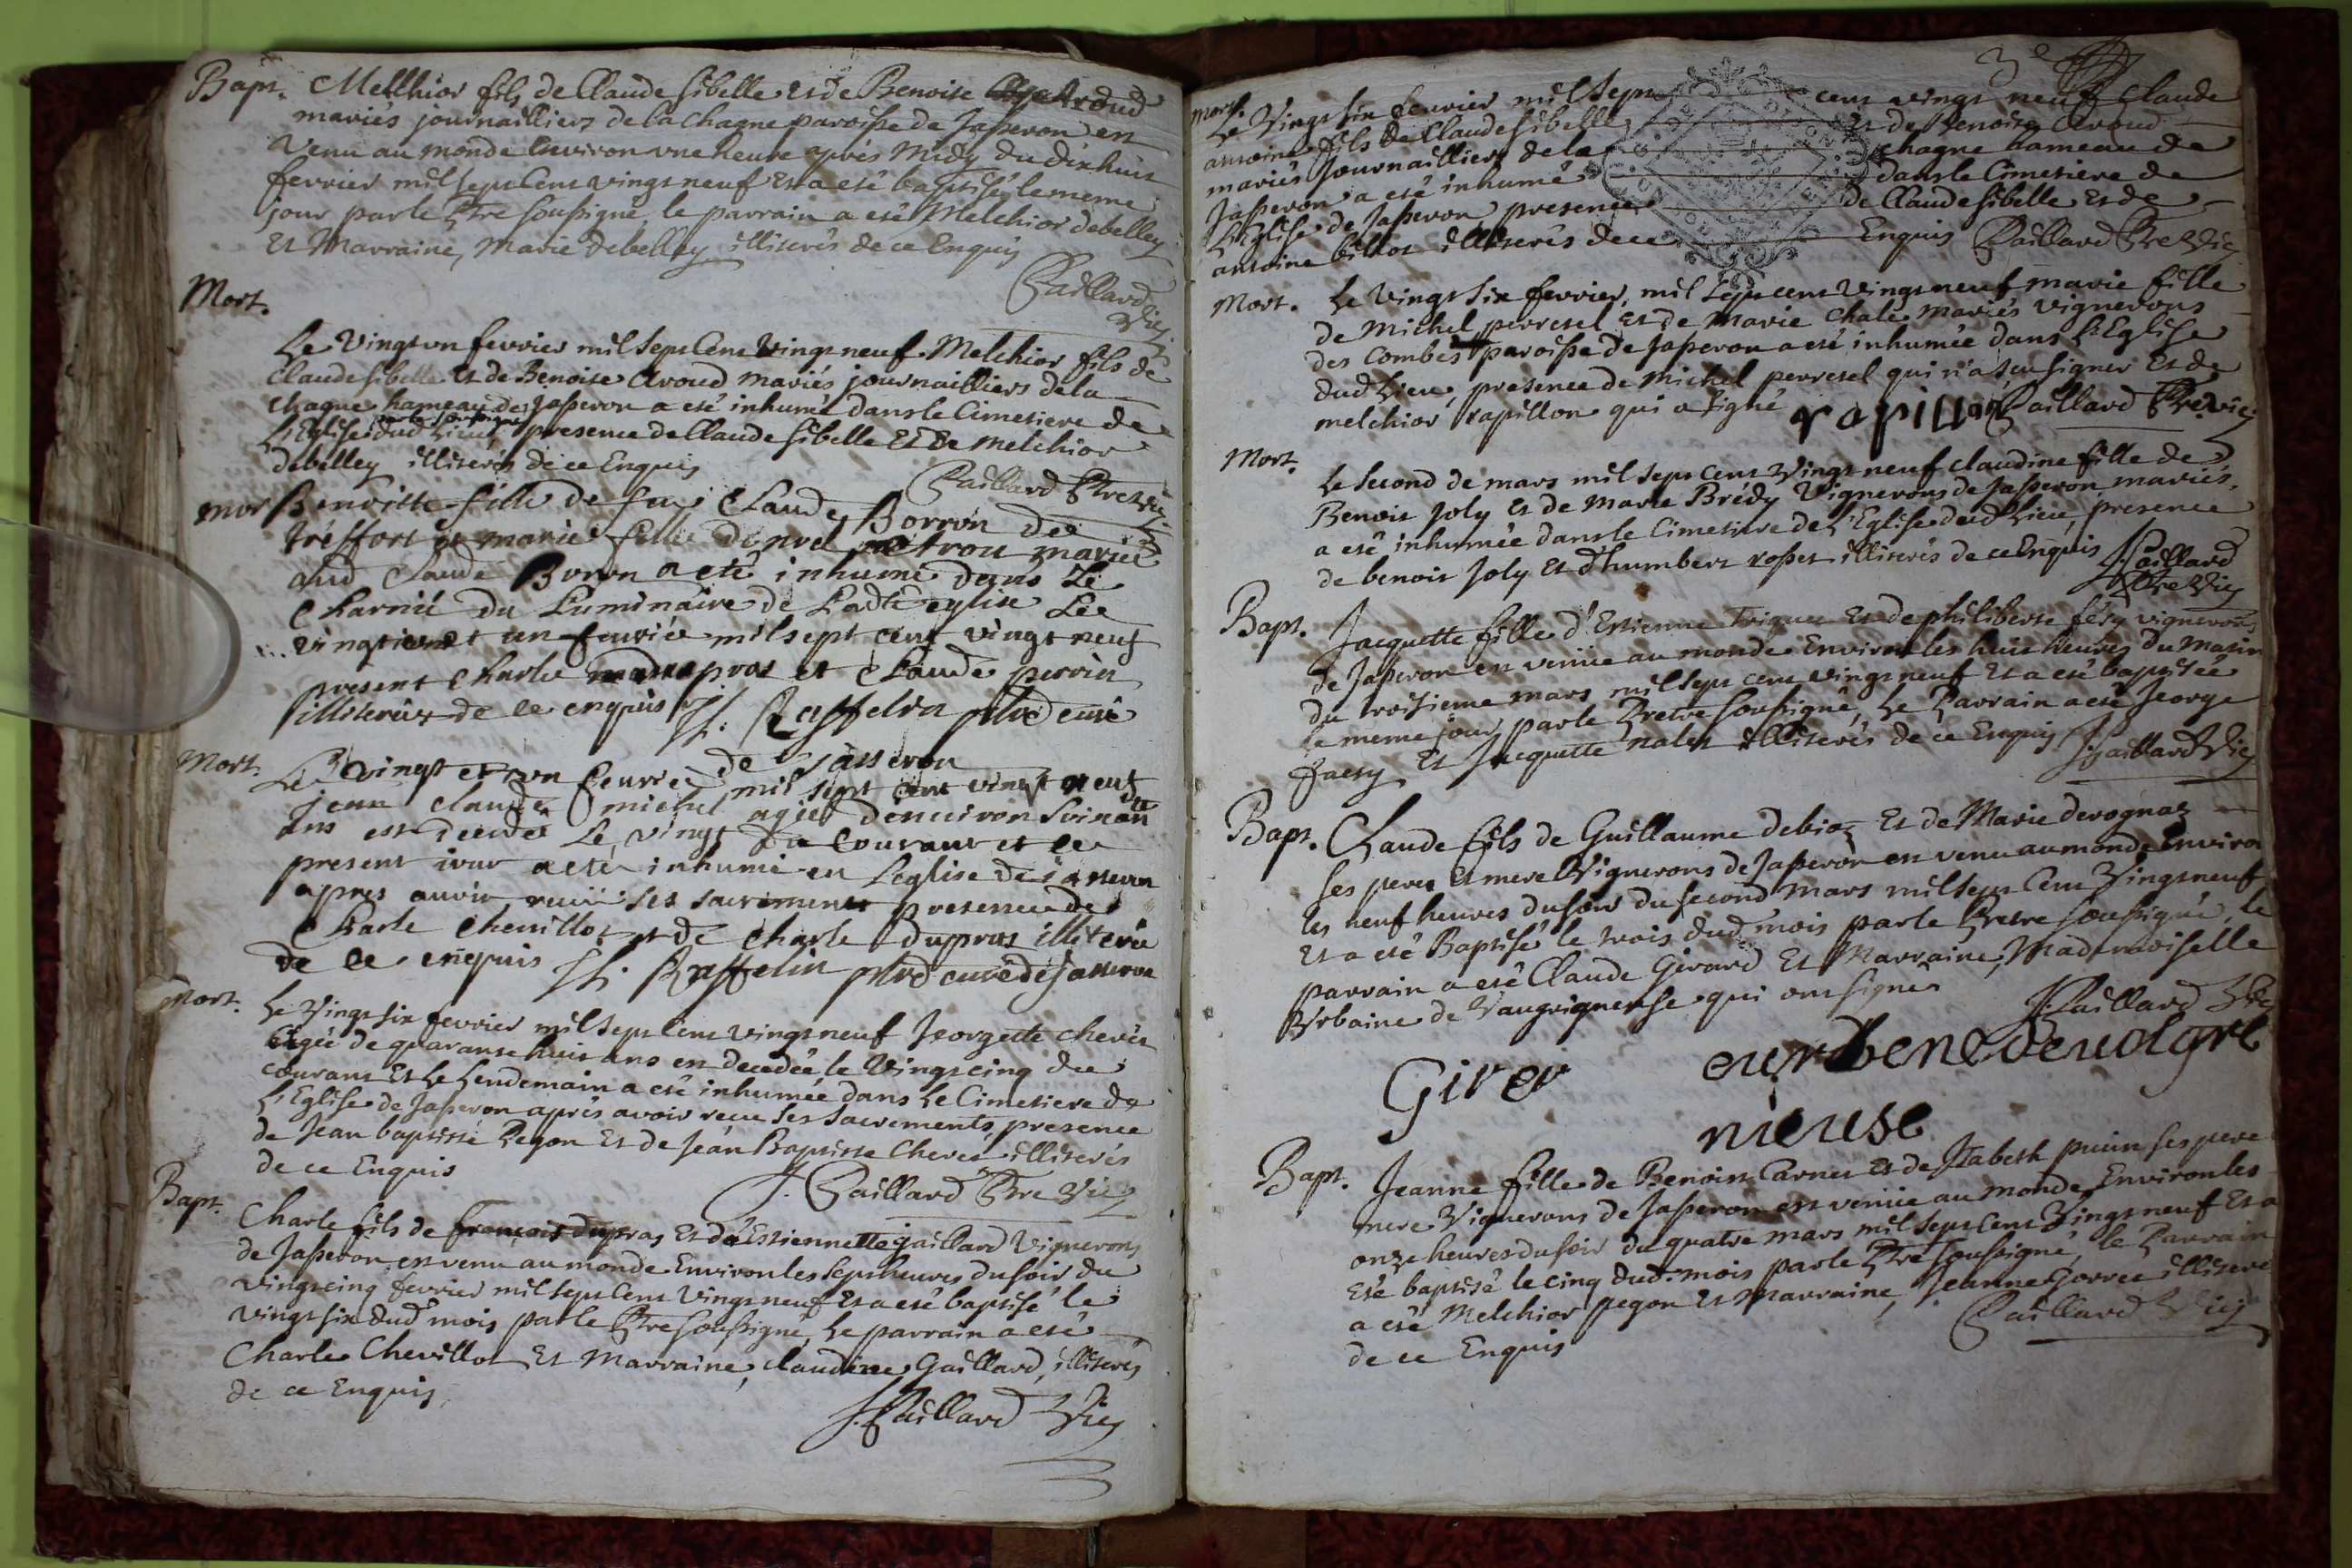 Bapt. Mellhior fils de Claude Sibelle et de Benoite Aroud
mariés journailliers de la Chagne paroisse de Jasseron est
venu au monde Environ une heure après Midy du dixhuit
fevrier mil sept Cent vingt neuf Et a eté baptisé le meme
jour par le Ptre soussigné, le parrain a eté Melchior debelley
Et Marraine, Marie debelley illiterés de ce Enquis
Paillard
Vic
Mort.
Le Vingt un fevrier mil sept Cent Vingt neuf Melchior fils de
Claude sibelle Et de Benoite Aroud mariés journailliers de la
Chagne hameau de Jasseron a eté inhumé dans le Cimetiere de
L'Eglise dud Lieu, presence de Claude sibelle Et de Melchior
debelley illiterés de ce Enquis
Paillard Ptre Vic
Mor Benoitte fille de feu Claude Borron de
tréffort et marie fille
aud Claude Boron a eté inhumé dans Le
Charnié du Luminaire de Ladte eglise Le
vingt et un feurié mil sept cent vingt neuf
present Charle pras et Claude perrin
illiterés de ce enquis Raffelin curé
de Jasseron
Mort. Le vingt et un feurié mil sept cent vingt neuf
jean claude michel agié denuiron soixante
ans est decedé Le vingt du Courant et ce
present iour a eté inhumé en Leglise de iasseron
apres auoir receü ses sacrements presence de
Charle Cheuillot et de Charle dupras illiterés
de ce enquis Raffelin curé de jasseron
Mort. Le Vingt six fevrier mil sept Cent vingt neuf Jeorgette cheriu
agée de quarante huit ans est decedée le Vingt cinq du
courant Et Le Lendemain a eté inhumée dans Le Cimetiere de
L'Eglise de Jasseron après avoir receu ses sacrements, presence
de Jean baptiste Pegon Et de Jean Baptiste Cheriu illiterés
de ce Enquis
J. Paillard Ptre Vic
Bapt. Charle fils de françois dupras Et d'Estiennette Gaillard Vignerons
de Jasseron est venu au monde Environ les sept heures du soir du
vingt cinq fevrier mil sept Cent Vingt neuf Et a eté baptisé le
vingt six dud mois par le Ptre soussigné, Le parrain a eté
Charle Chevillot Et Marraine, Claudine Gaillard, illiterés
de ce Enquis,
J. Paillard Vic
3e
mort. Le Vingt six fevrier mil sept cent vingt neuf Claude
antoine fils de Claude sibelle Et de Benoite Aroud
mariés Journailliers de la Chagne hameau de
Jasseron a eté inhumé dans le Cimetiere de
L'Eglise de Jasseron presence de Claude sibelle Et de
antoine billot illiterés de ce Enquis Paillard Ptre Vic
Mort. Le Vingt six fevrier, mil sept cent Vingt neuf marie fille
de Michel perretel Et de Marie Chale mariés vignerons
des Combes paroisse de Jasseron a eté inhumée dans L'Eglise
dud Lieu, presence de Michel perretel qui n'a sçeu signer Et de
melchior rapillon qui a signé rapillon Paillard Ptre Vic
Mort. Le second de mars mil sept Cent Vingt neuf Claudine fille de
Benoit Joly Et de Marie Brédy Vignerons de Jasseron mariés,
a eté inhumée dans le Cimetiere de L'Eglise dud Lieu, presence
de benoit Joly Et d'humbert rosset illiterés de ce Enquis J. Paillard
Ptre Vic
Bapt. Jacquette fille d'Estienne Et de philiberte féry vignerons
de Jasseron est venüe au monde Environ les huit heures du Matin
du troisieme mars mil sept cent vingt neuf Et a eté baptisée
le meme jour, par le Pretre soussigné, Le Parrain a eté Jeorge
faery Et Jacquette nalet illiterés de ce Enquis J. Paillard Vic
Bapt. Claude fils de Guillaume debioz Et de Marie derognat
ses pere Et mere Vignerons de Jasseron est venu au monde Environ
les neuf heures du soir du second Mars mil sept Cent Vingt neuf
Et a eté Baptisé le trois dud. mois par le Pretre soussigné, le
parrain a eté Claude Girard Et Marraine, Mademoiselle
Urbaine de Vaugrigneuse qui ont signés
J. Paillard Vic
Girer eurbene devolgre
nieuse
Bapt. Jeanne fille de Benoist Carnet Et de Isabeth puin ses pere
mere Vignerons de Jasseron est venüe au monde Environ les
onze heures du soir du quatre mars mil sept Cent Vingt neuf Et a
eté baptisé le cinq dud. mois par le Ptre soussigné, le Parrain
a eté Melchior pegon Et Marraine, Jeanne Gorret illiteré
de ce Enquis
Paillard Vic